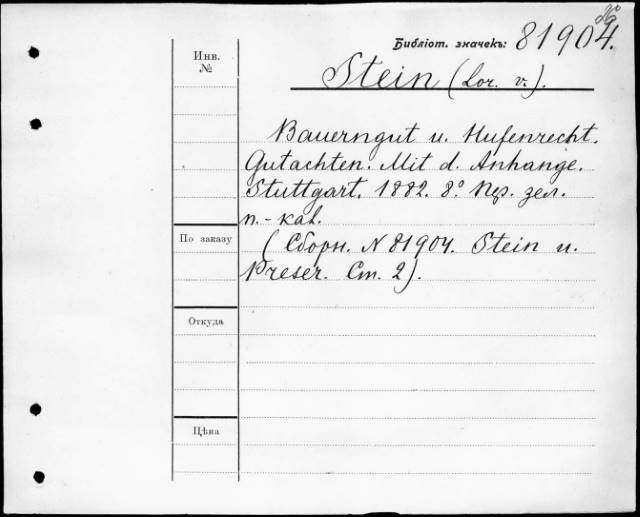 Библіот. значекъ: 81904.
Инв.
№
Stein (Lor. v.).
Bauerngut u. Hufenrecht.
Gutachten. Mit d. Anhange.
Stuttgart. 1882. 8° Пер. зел.
п.-кал.
По заказу
(Сборн. N 81904. Stein u.
Preser. Ст. 2).
Откуда
Цѣна